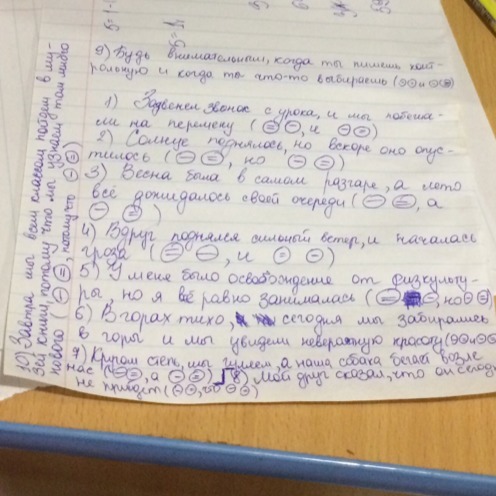 9) Будь внимательным, когда ты пишешь конт-
рольную и когда ты что-то выбираешь (
1) Зазвенел звонок с урока, и мы побежа-
ли на перемену (= -, и - =)
2) Солнце поднялось, но вскоре оно опус-
тилось (- =, но - =)
3) Весна была в самом разгаре, а лето
всё дожидалось своей очереди (- =, а
- =)
4) Вдруг поднялся сильный ветер, и началась
гроза (= -, и = -)
5) У меня было освобождение от физкульту-
ры, но я всё равно занималась (= -, но - =)
6) В горах тихо, сегодня мы забирались
в горы и мы увидели невероятную красоту (
7) Кругом степь, мы гуляем, а наша собака бегает возле
нас (- =, а - =) 8) Мой друг сказал, что он сегодня
не придёт (- =, что - =)
10) Завтра мы всем классом пойдём в му-
зей книги, потому что мы узнаем там много
нового (- =, потому что - =)
5=1-